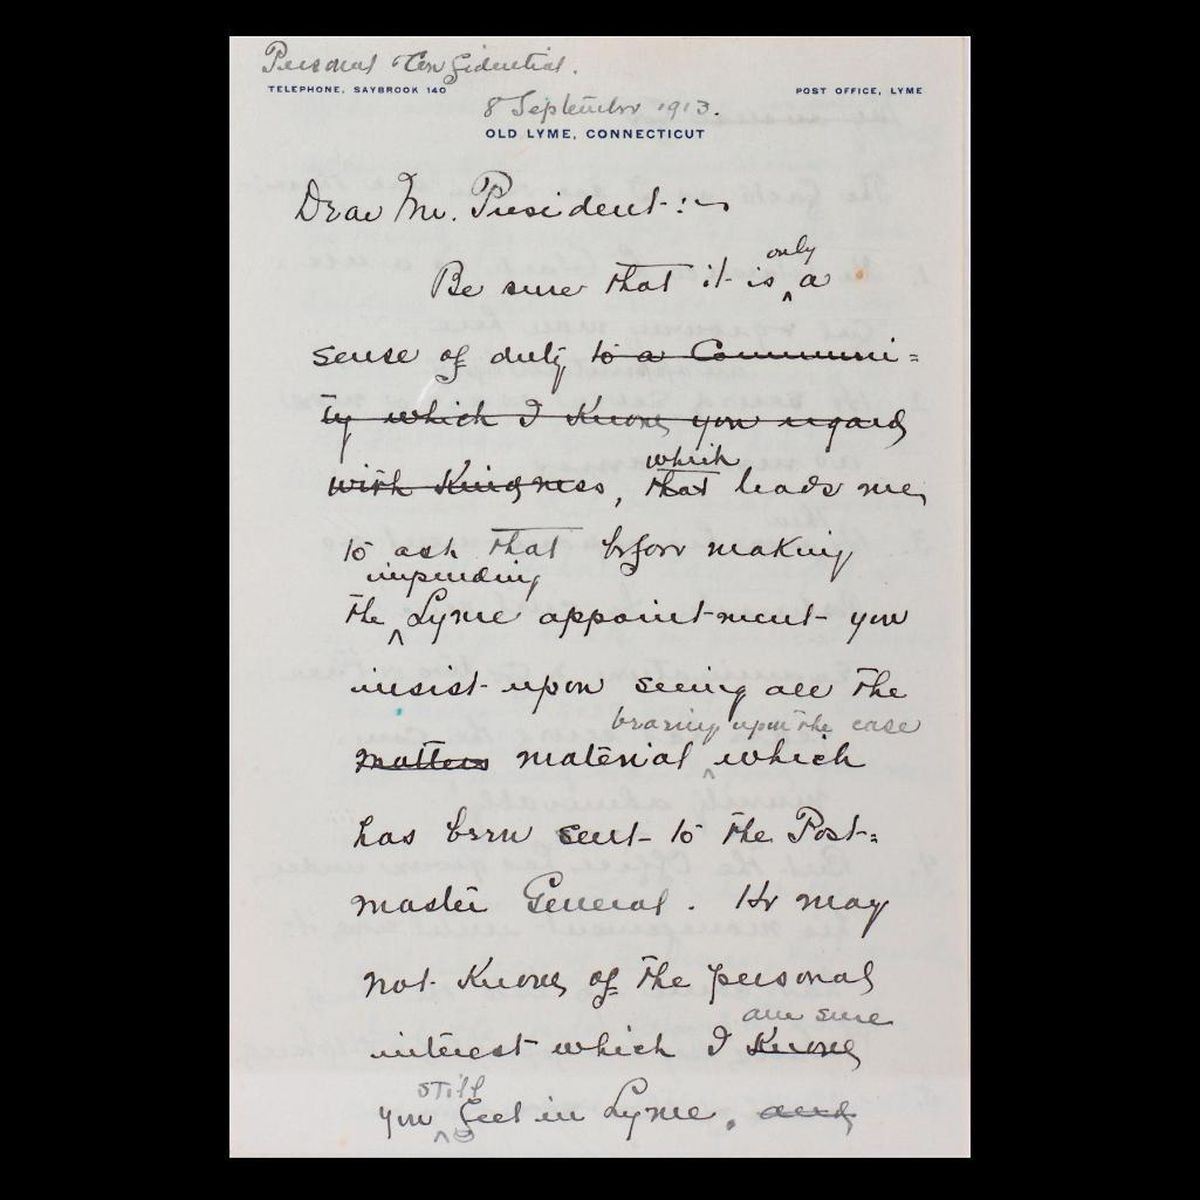 Personal Confidential.
TELEPHONE, SAYBROOK 140
POST OFFICE, LYME
8 September 1913.
OLD LYME, CONNECTICUT
Dear Mr. President:—
only
Be sure that it is ^ a
sense of duty to a Communi=
ty which I know you regard
which
with kindness, that leads me
to ask that before making
impending
the ^ Lyme appointment you
insist upon seeing all the
bearing upon the case
matters material ^ which
has been sent to the Post=
master General. He may
not know of the personal
am sure
interest which I know
still
you ^ feel in Lyme. and